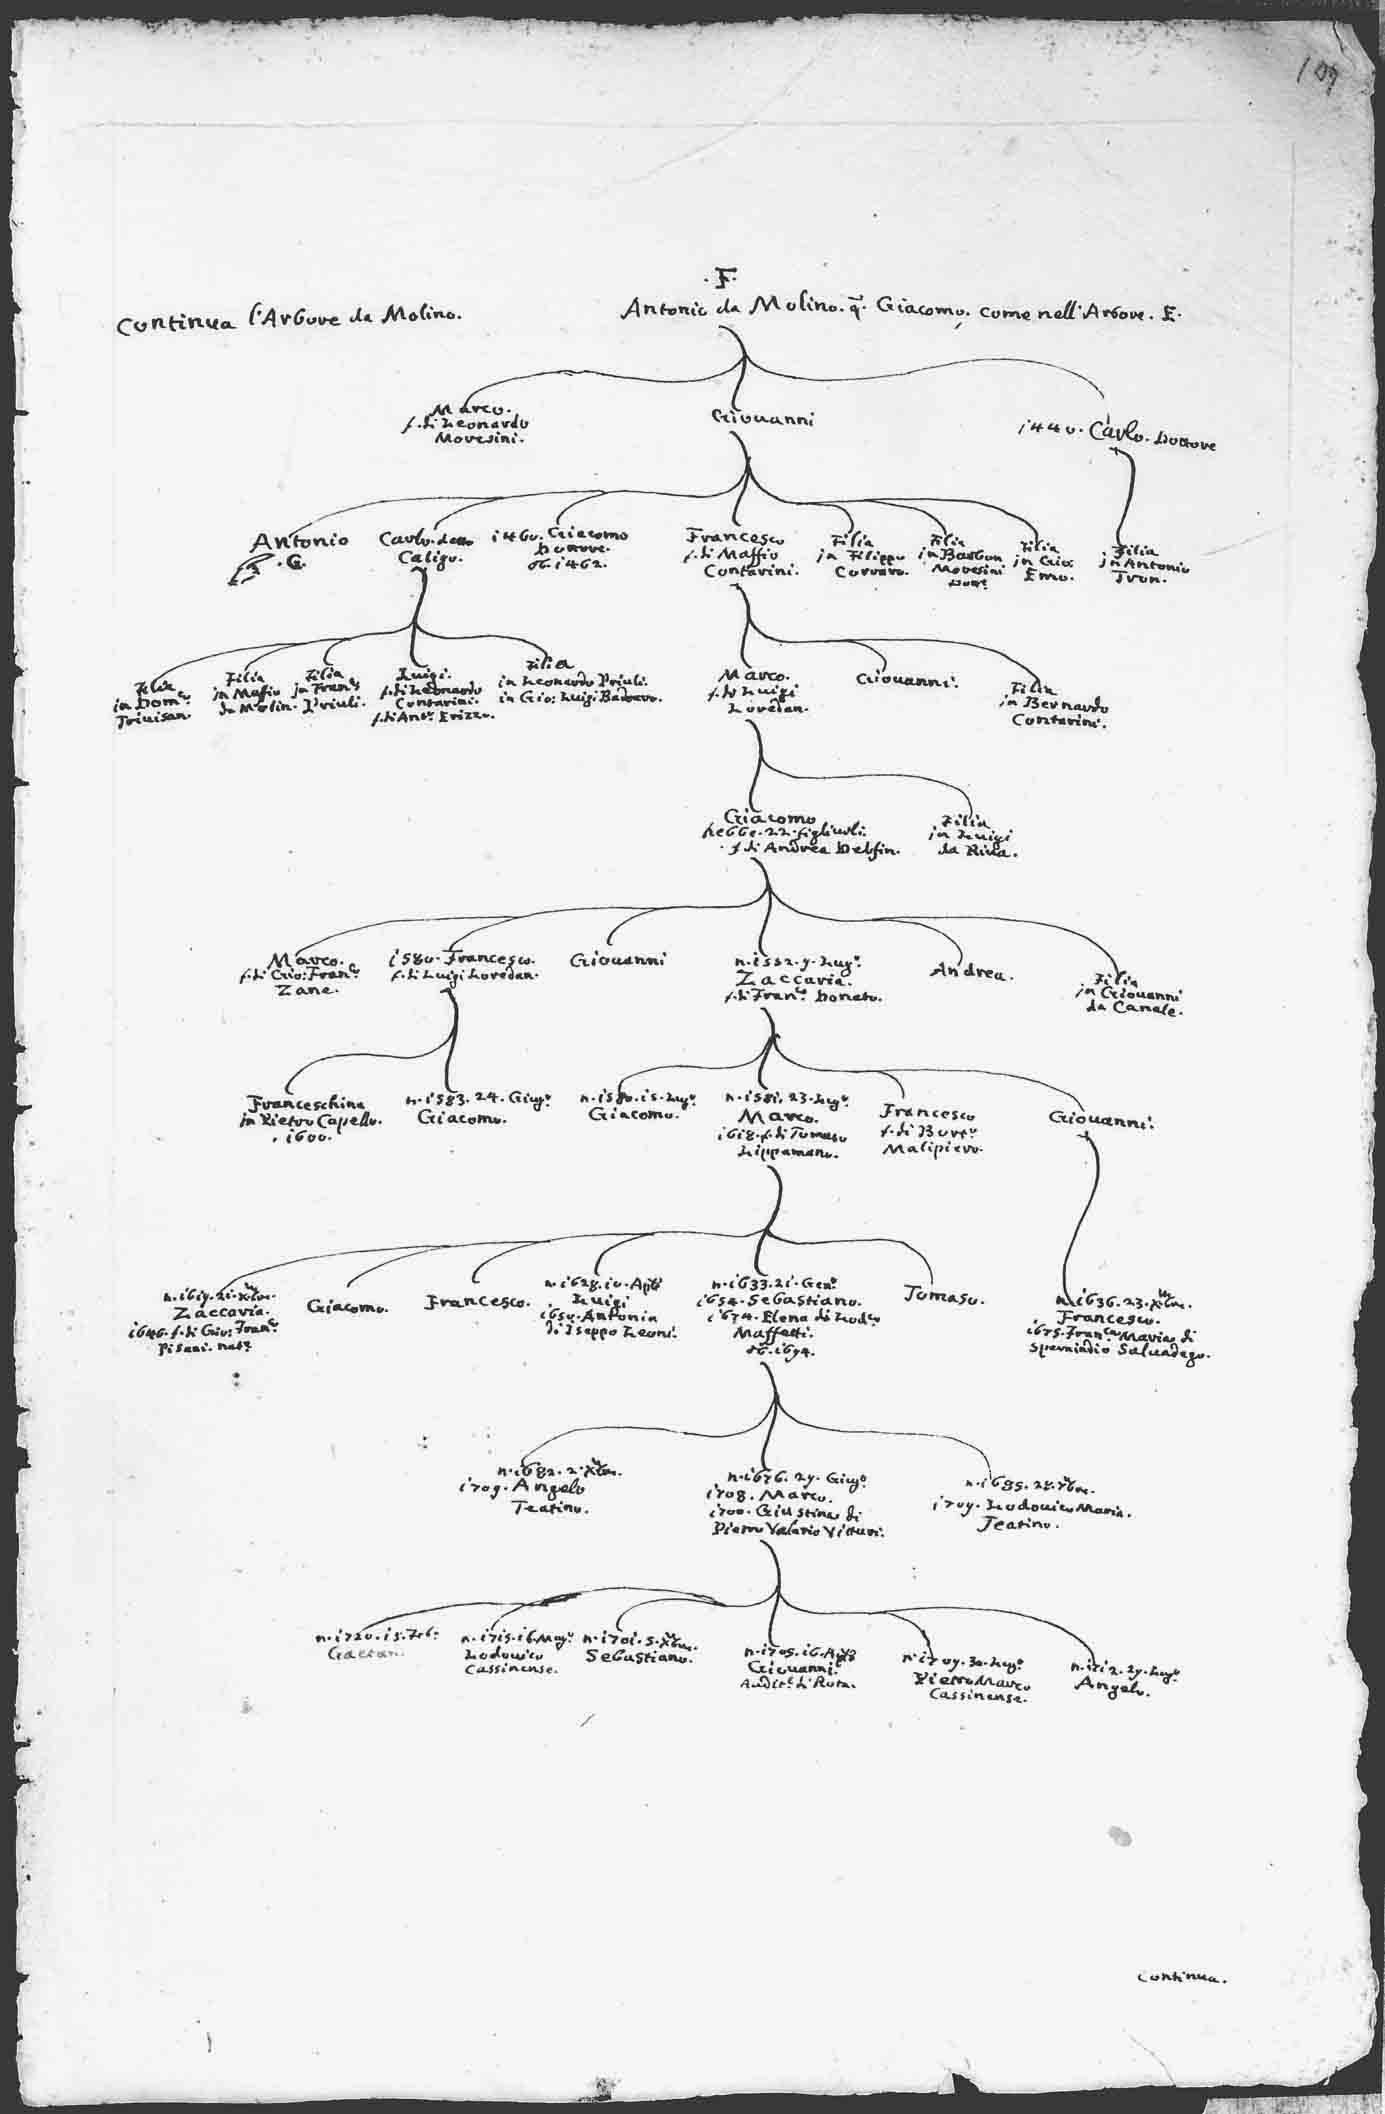 109
.F.
Continua l'Arbore da Molino.
Antonio da Molino. q. Giacomo, come nell'Arbore. E.
Marco.
f. di Leonardo
Moresini.
Giouanni
1440. Carlo. Dottore
Antonio
.G.
Carlo. detto
Caligo.
1460. Giacomo
Dottore.
ob. 1462.
Francesco
f. di Maffio
Contarini.
Filia
in Filippo
Corraro.
Filia
in Barbon
Moresini
Filia
in Gio:
Emo.
Filia
in Antonio
Tron.
Filia
in Dom.co
Triuisan
Filia
in Mafio
da Molin.
Filia
in Fran.co
Priuli.
Luigi.
f. di Leonardo
Contarini.
f. di Ant.o Erizzo.
Filia
in Leonardo Priuli.
in Gio: Luigi Badoero.
Marco.
f. di Luigi
Loredan.
Giouanni.
Filia
in Bernardo
Contarini.
Giacomo
hebbe. 22. figliuoli.
f. di Andrea Delfin.
Filia
in Luigi
da Riua.
Marco.
f. di Gio: Fran.co
Zane.
1580. Francesco.
f. di Luigi Loredan.
Giouanni
n. 1552. 9. Lug.o
Zaccaria.
f. di Fran.co Donato.
Andrea.
Filia
in Giouanni
da Canale.
Franceschina
in Pietro Capello.
1600.
n. 1583. 24. Giug.o
Giacomo.
n. 1580. 15. Lug.o
Giacomo.
n. 1581. 23. Lug.o
Marco.
1618. f. di Tomaso
Lippamano.
Francesco
f. di Bort.o
Malipiero.
Giouanni.
n. 1619. 21. Xbre.
Zaccaria.
1646. f. di Gio: Fran.co
Pisani. nat.e
Giacomo.
Francesco.
n. 1628. 10. Aple
Luigi
1650. Antonia
di Iseppo Leoni.
n. 1633. 21. Gen.o
1654. Sebastiano.
1674. Elena di Lod.co
Maffetti.
ob. 1694.
Tomaso.
n. 1636. 23. Xbre.
Francesco.
1675. Fran.ca Maria di
Sperindio Saluadego.
n. 1682. 2. Xbre.
1709. Angelo
Teatino.
n. 1676. 29. Giug.o
1708. Marco.
1700. Giustina di
Pietro Valerio Vitturi.
n. 1685. 28.
1709. Lodouico Maria.
Teatino.
n. 1720. 15. Feb:
Gaetan.
n. 1715. 16. Mag.o
Lodouico
Cassinense.
n. 1701. 5. Xbre.
Sebastiano.
n. 1705. 16. Aple
Giouanni.
Audit.e di Rota.
n. 1709. 30. Lug.o
Pietro Marco
Cassinense.
n. 1712. 29. Lug.o
Angelo.
Continua.